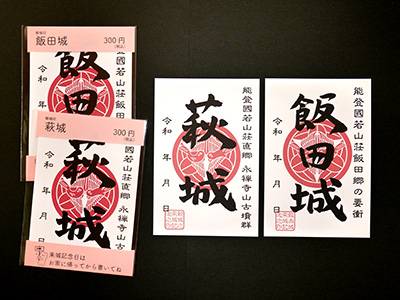 御城印
飯田城
300円
(税込)
能登國若山荘飯田
飯田
令和 年 月
御城印
萩城
300円
(税込)
國若山荘直郷 永禅寺山古
萩城
令和 年 月 日
来城記念日は
お家に帰ってから書いてね
能登國若山荘直郷 永禅寺山古墳群
萩城
令和 年 月 日
能登國若山荘飯田郷の要衝
飯田城
令和 年 月 日